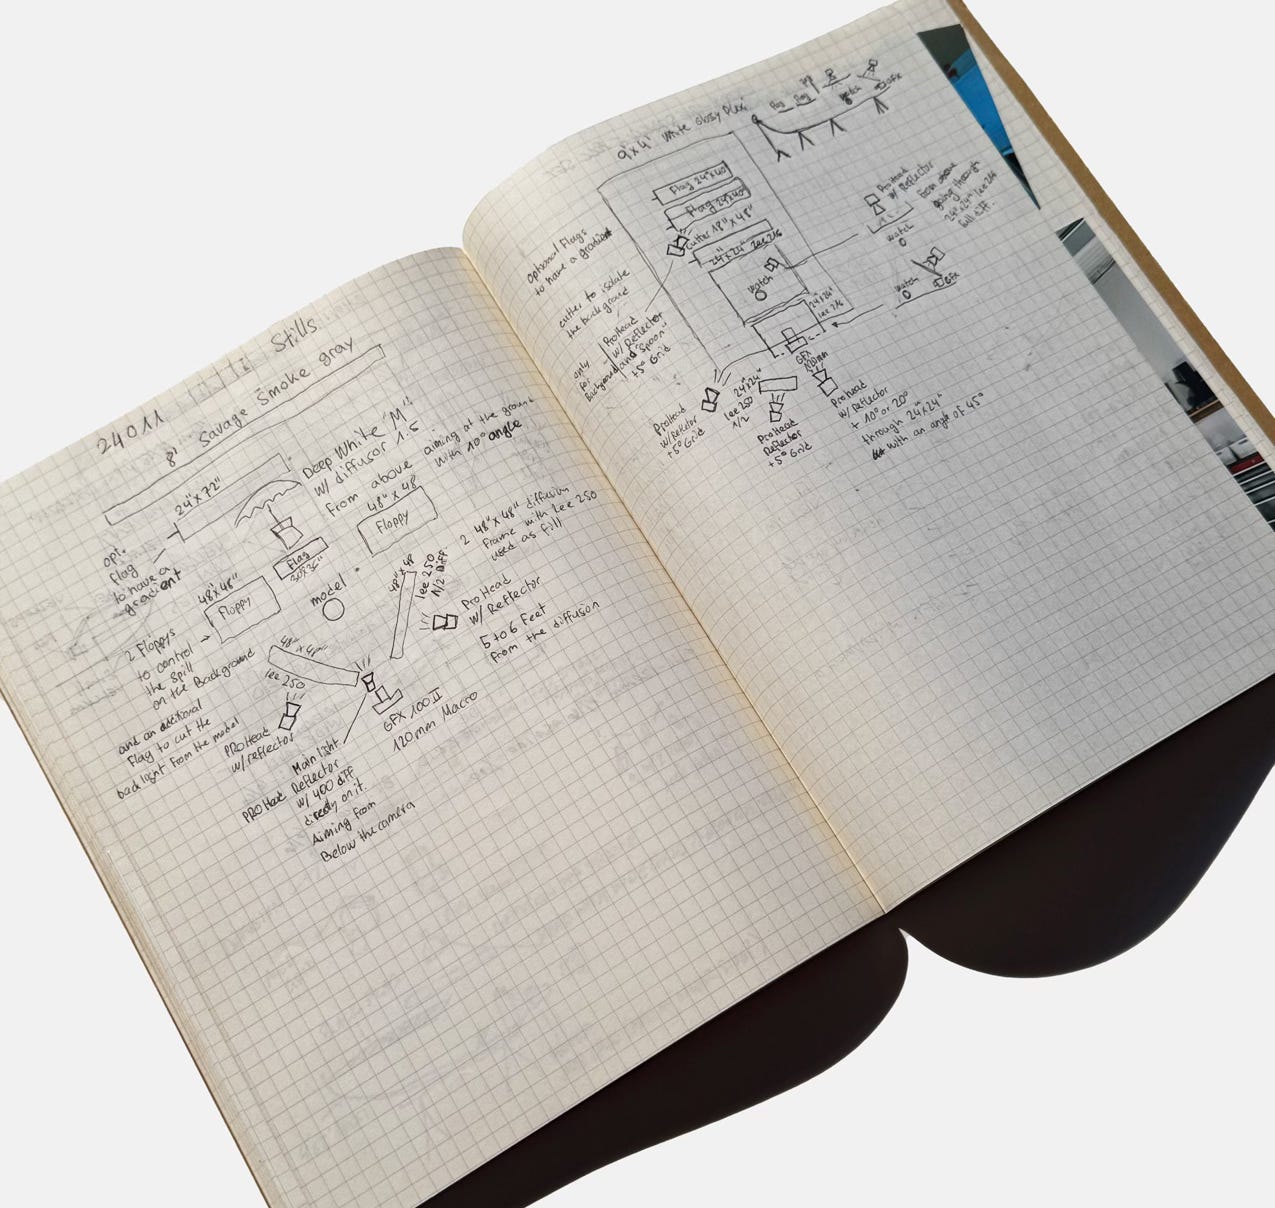 24011
Stills
8' Savage Smoke gray
24"x72"
opt.
flag
to have a
gradient
Deep White "M"
w/ diffusor 1.5
From above aiming at the ground
with 10° angle
Flag
30x36"
48"x48
Floppy
48"x48"
Floppy
model
2 Floppys
to control
the spill
on the Background
and an additional
Flag to cut the
backlight from the model
48"x48
lee 250
1/2 Diff
2 48"x48" diffusion
Frame with Lee 250
used as fill
ProHead
w/ Reflector
5 to 6 Feet
from the diffusion
lee 250
PROHead
w/ reflector
GFX 100 II
120mm Macro
Main light
PROHead Reflector
w/ 400 diff
directly on it.
Aiming from
Below the camera
9'x4' white Glossy Plexi
flag
flag
watch
GFX
Optional Flags
to have a gradient
Flag 24"x40"
Flag 24"x40"
Cutter 18"x48"
24"x24" lee 216
watch
cutter to isolate
the background
only
for
Background
ProHead
w/ Reflector
and "Spoon"
+5° Grid
24"x24"
lee 216
GFX
120mm
ProHead
w/ Reflector
from above
going through
24"x24" lee 216
full diff.
watch
watch
GFX
ProHead
w/ Reflector
+5° Grid
24"x24"
lee 250
1/2
ProHead
Reflector
+5° Grid
ProHead
w/ Reflector
+ 10° or 20°
through 24"x24"
but with an angle of 45°